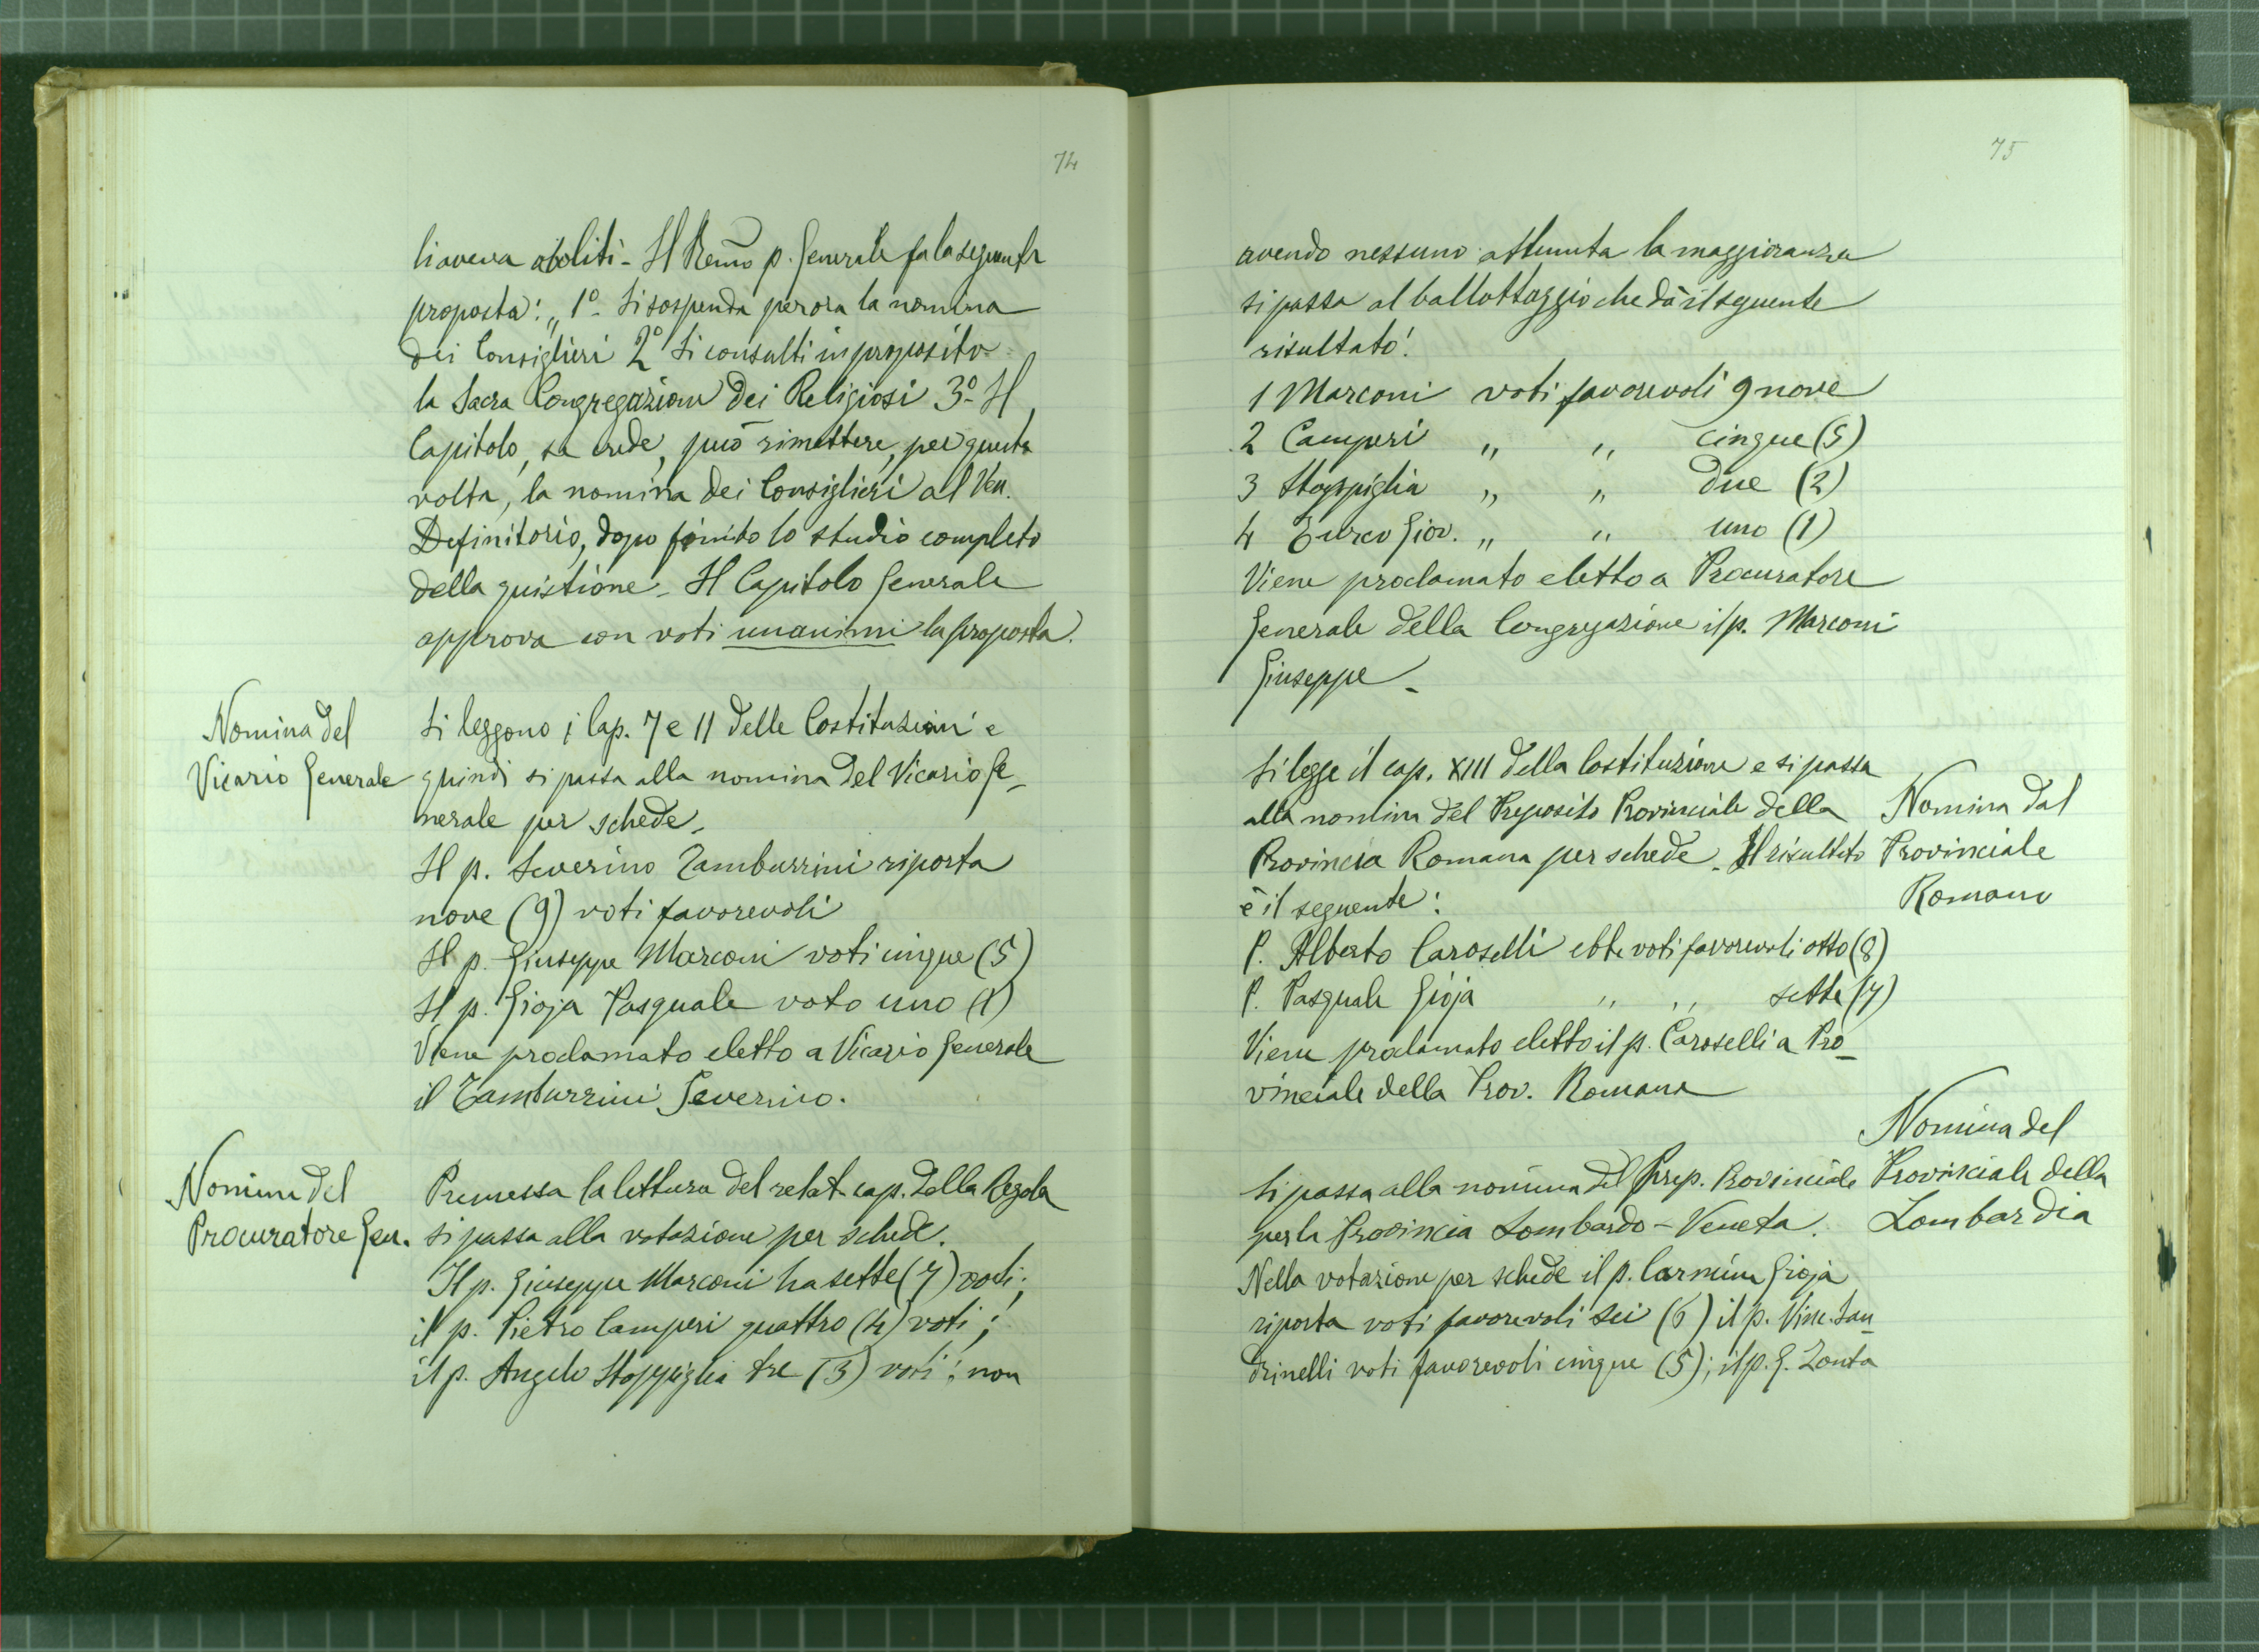 74
li aveva aboliti - Il Rev̄mo p. Generale fa la seguente
proposta: „ 1º - Si sospenda per ora la nomina
dei Consiglieri 2º Si consulti in proposito
la Sacra Congregazione dei Religiosi 3º - Il
Capitolo, se crede, può rimettere, per questa
volta, la nomina dei Consiglieri al Ven.
Definitorio, dopo finito lo studio completo
della quistione - Il Capitolo Generale
approva con voti unanimi la proposta.
Nomina del
Vicario Generale
Si leggono i Cap. 7 e 11 delle Costituzioni e
quindi si passa alla nomina del Vicario Ge-
nerale per schede.
Il p. Severino Tamburrini riporta
nove (9) voti favorevoli
Il p. Giuseppe Marconi voti cinque (5)
Il p. Gioja Pasquale voto uno (1)
Viene proclamato eletto a Vicario Generale
il Tamburrini Severino.
Nomina del
Procuratore Gen.
Premessa la lettura del relat. cap. della Regola
si passa alla votazione per schede.
Il p. Giuseppe Marconi ha sette (7) voti;
il p. Pietro Camperi quattro (4) voti;
il p. Angelo Stoppiglia tre (3) voti; non
75
avendo nessuno ottenuta la maggioranza
si passa al ballottaggio che dà il seguente
risultato:
1 Marconi voti favorevoli 9 nove
2 Camperi „ „ cinque (5)
3 Stoppiglia „ „ due (2)
4 Turco Giov. „ „ uno (1)
Viene proclamato eletto a Procuratore
Generale della Congregazione il p. Marconi
Giuseppe -
Si legge il cap. XIII della Costituzione e si passa
alla nomina del Preposito Provinciale della
Provincia Romana per schede - Il risultato
è il seguente:
P. Alberto Caroselli ebbe voti favorevoli otto (8)
P. Pasquale Gioja „ „ sette (7)
Viene proclamato eletto il p. Caroselli a Pro-
vinciale della Prov. Romana
Nomina dal
Provinciale
Romano
Si passa alla nomina del Prep. Provinciale
per la Provincia Lombardo-Veneta.
Nella votazione per schede il p. Carmine Gioja
riporta voti favorevoli sei (6) il p. Vinc. San-
drinelli voti favorevoli cinque (5); il p. G. Zonta
Nomina del
Provinciale della
Lombardia